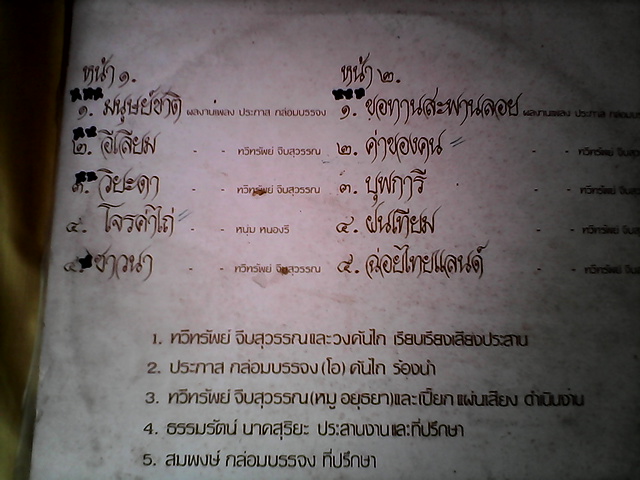 หน้า ๑.
๑. มนุษย์ชาติ ผลงานเพลง ประภาส กล่อมบรรจง
๒. อีเลียม - - ทวีทรัพย์ จีบสุวรรณ
๓. วิยะดา - - ทวีทรัพย์ จีบสุวรรณ
๔. โจรค้าไถ่ - - หนุ่ม หนองรี
๕. ชาวนา - - ทวีทรัพย์ จีบสุวรรณ
หน้า ๒.
๑. ขอทานสะพานลอย ผลงานเพลง ประภาส กล่อมบรรจง
๒. ค่าของคน ทวีทรัพย์ จีบ
๓. บุพการี - - ทวีทรัพย์ จีบ
๔. ฝนเทียม - - ทวีทรัพย์ จีบ
๕. ฉ่อยไทยแลนด์ - - ทวีทรัพย์ จีบ
1. ทวีทรัพย์ จีบสุวรรณและวงคันไถ เรียบเรียงเสียงประสาน
2. ประภาส กล่อมบรรจง (โอ) คันไถ ร้องนำ
3. ทวีทรัพย์ จีบสุวรรณ(หมู อยุธยา)และเปี๊ยก แผ่นเสียง ดำเนินงาน
4. ธรรมรัตน์ นาคสุริยะ ประสานงานและที่ปรึกษา
5. สมพงษ์ กล่อมบรรจง ที่ปรึกษา